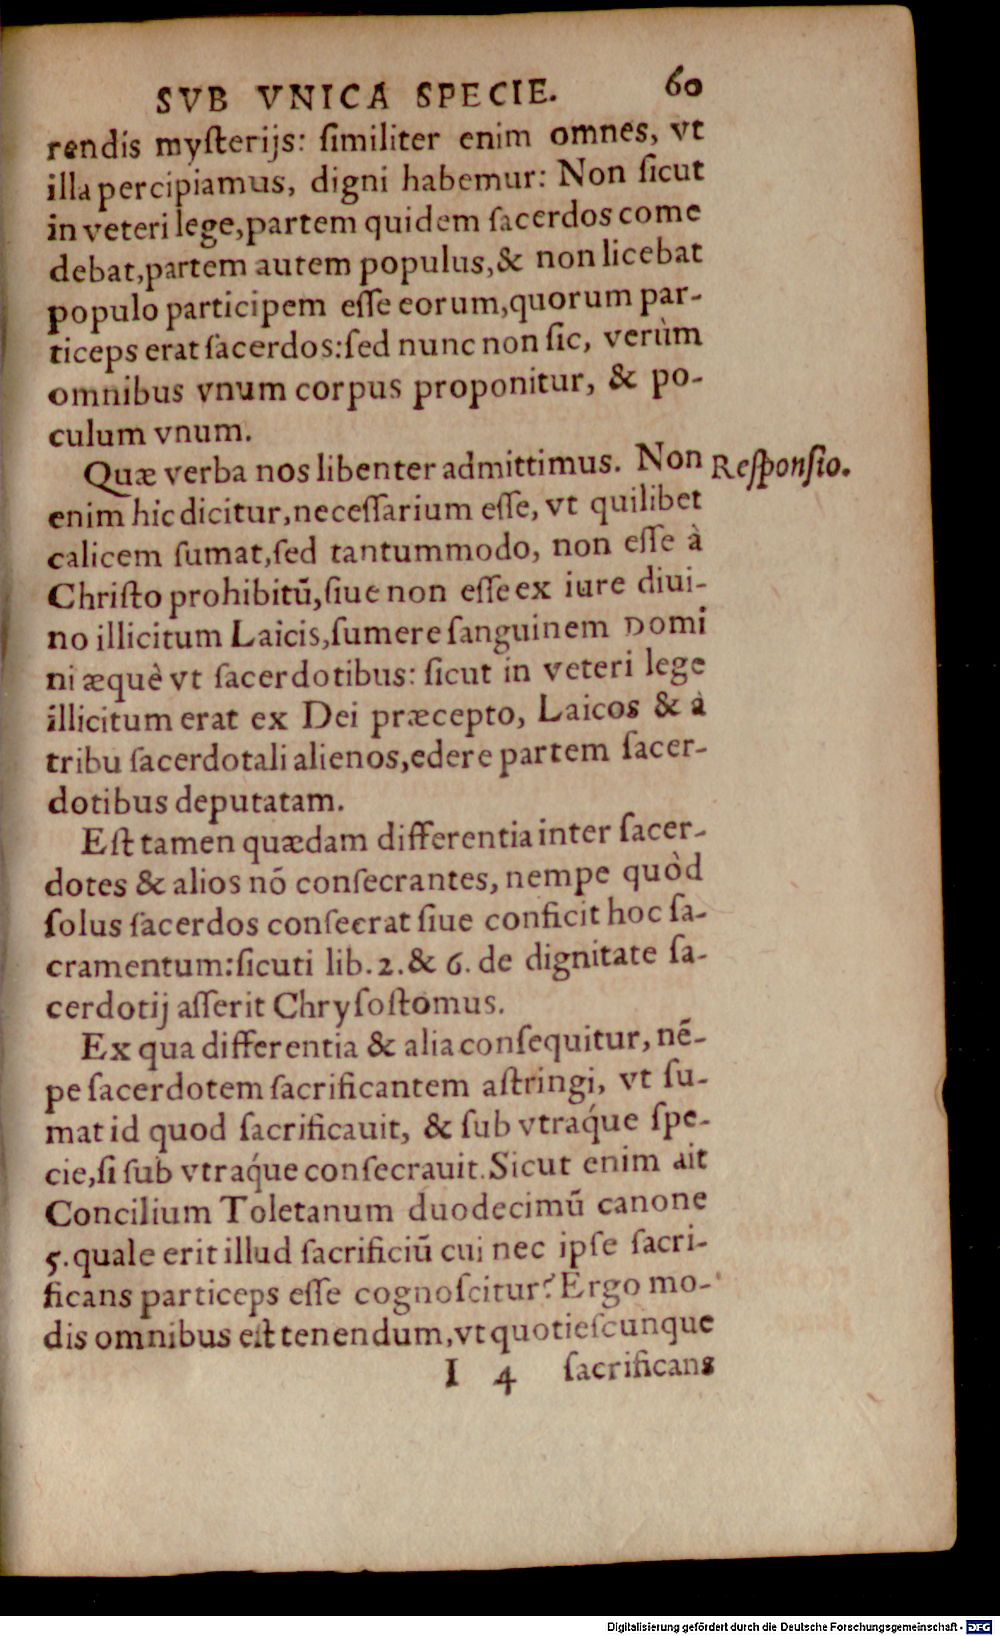 SVB VNICA SPECIE. 60
rendis myſterijs: ſimiliter enim omnes, vt
illa percipiamus, digni habemur: Non ſicut
in veteri lege, partem quidem ſacerdos come
debat, partem autem populus, & non licebat
populo participem eſſe eorum, quorum par-
ticeps erat ſacerdos: ſed nunc non ſic, verùm
omnibus vnum corpus proponitur, & po-
culum vnum.
Quæ verba nos libenter admittimus. Non Reſponſio.
enim hic dicitur, neceſſarium eſſe, vt quilibet
calicem ſumat, ſed tantummodo, non eſſe à
Chriſto prohibitũ, ſiue non eſſe ex iure diui-
no illicitum Laicis, ſumere ſanguinem Domi
ni æquè vt ſacerdotibus: ſicut in veteri lege
illicitum erat ex Dei præcepto, Laicos & à
tribu ſacerdotali alienos, edere partem ſacer-
dotibus deputatam.
Eſt tamen quædam differentia inter ſacer-
dotes & alios nõ conſecrantes, nempe quòd
ſolus ſacerdos conſecrat ſiue conficit hoc ſa-
cramentum: ſicuti lib. 2. & 6. de dignitate ſa-
cerdotij aſſerit Chryſoſtomus.
Ex qua differentia & alia conſequitur, nẽ-
pe ſacerdotem ſacrificantem aſtringi, vt ſu-
mat id quod ſacrificauit, & ſub vtraq́ue ſpe-
cie, ſi ſub vtraq́ue conſecrauit. Sicut enim ait
Concilium Toletanum duodecimũ canone
5. quale erit illud ſacrificiũ cui nec ipſe ſacri-
ficans particeps eſſe cognoſcitur? Ergo mo-
dis omnibus eſt tenendum, vt quotieſcunque
I 4 ſacrificans
Digitalisierung gefördert durch die Deutsche Forschungsgemeinschaft - DFG